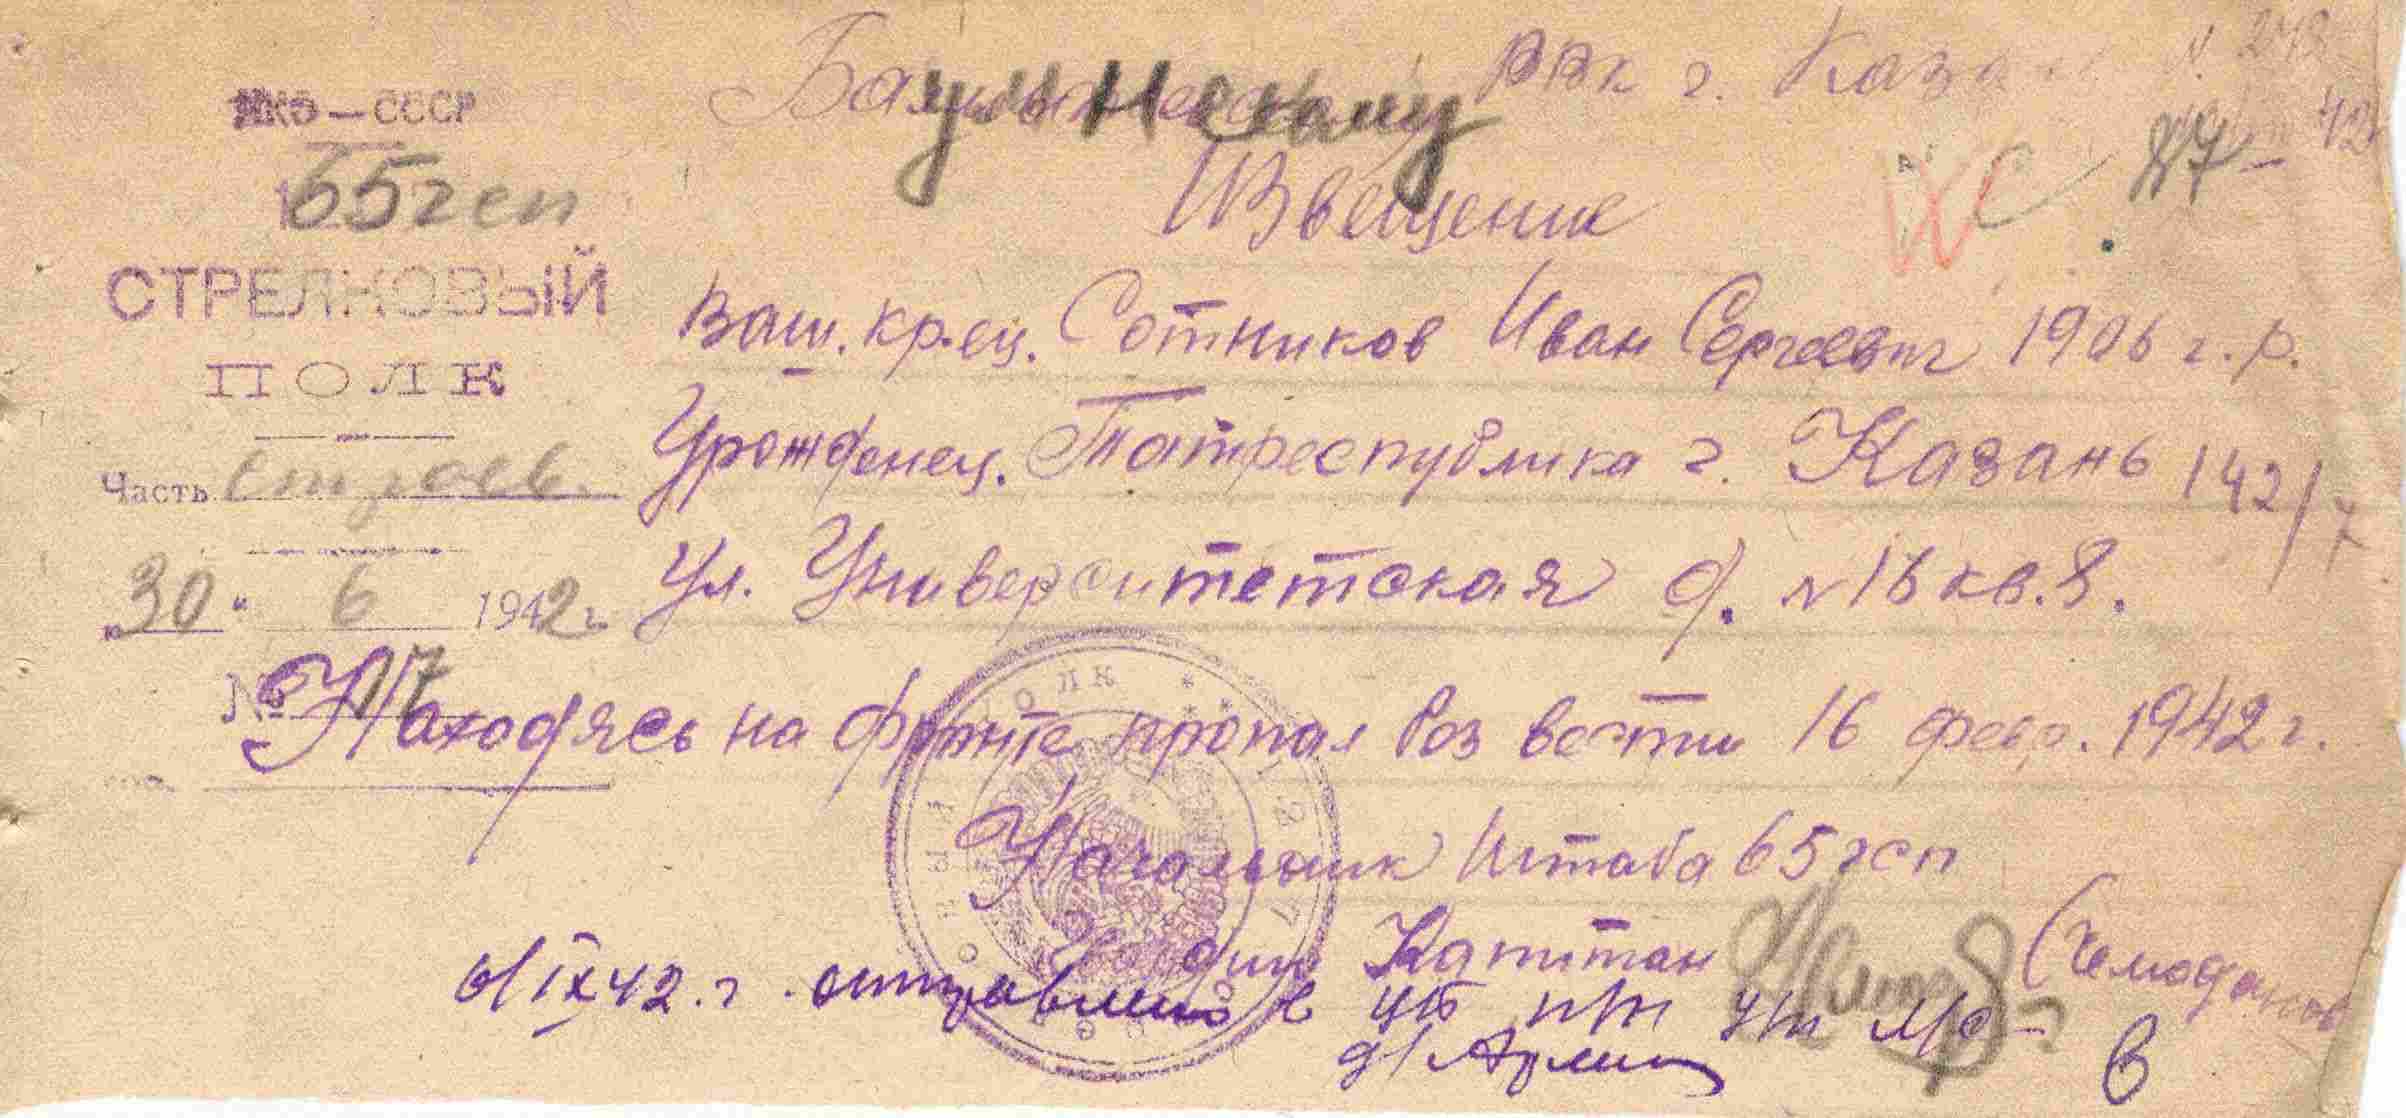 НКО — СССР
65 гсп
СТРЕЛКОВЫЙ
ПОЛК
Часть строев.
30 " 6 1942 г.
№ 117
Бауманскому РВК г. Казань
87
Извещение
Ваш. кр.ец. Сотников Иван Сергеевич 1906 г.р.
Урожденец. Татреспублика г. Казань 142/7
ул. Университетская д. № 16 кв. 8.
Находясь на фронте пропал без вести 16 февр. 1942 г.
Начальник Штаба 65 гсп
Гвардии Капитан (Чемоданов
IX 42. г. отправлено в
ПОЛК